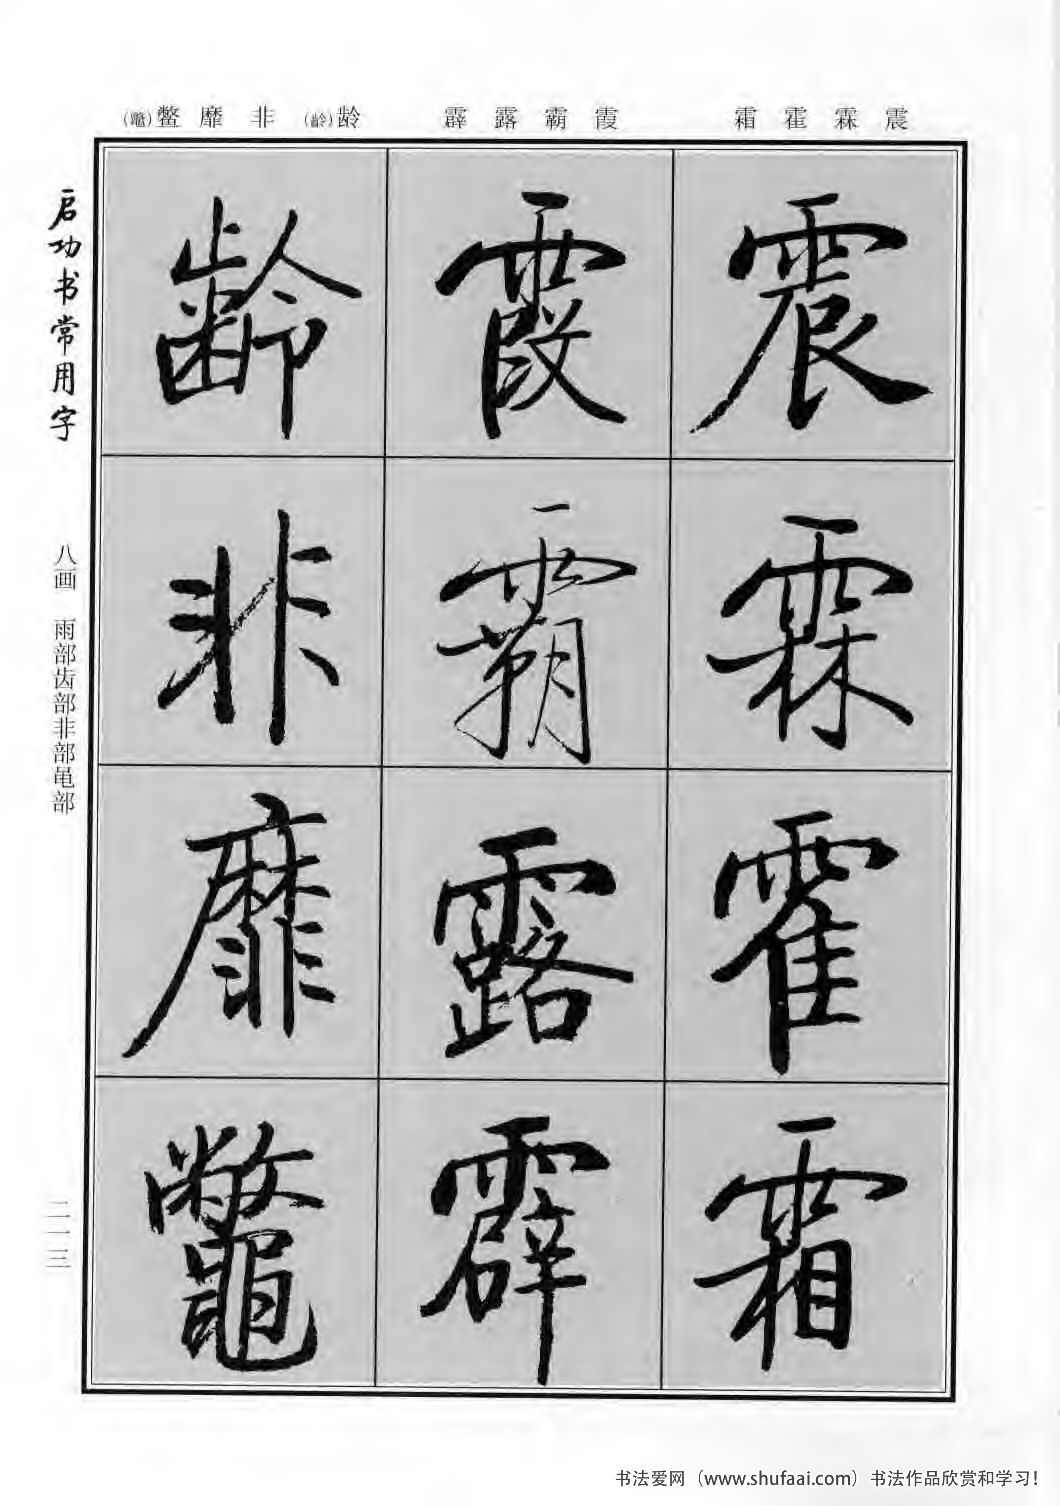 震霖霍霜
霞霸露霹
龄(齡)非靡鳖(鼈)
震霖霍霜
霞霸露霹
齡非靡鼈
启功书常用字
八画 雨部齿部非部黾部
二一三
书法爱网（www.shufaai.com）书法作品欣赏和学习！